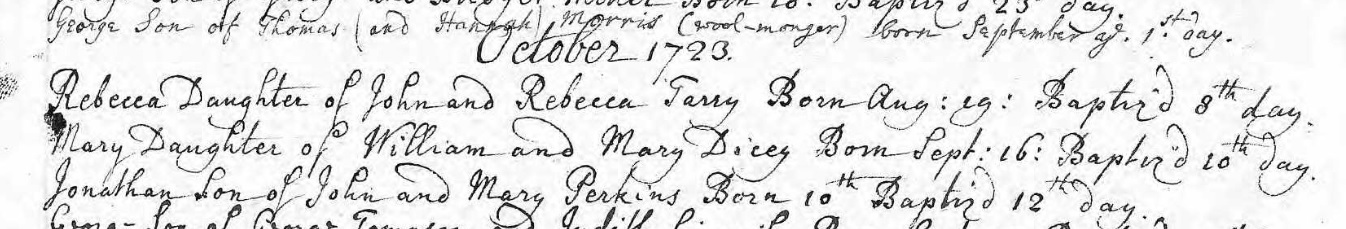 Born 10. Baptiz'd 23 day.
George Son of Thomas (and Hannah) Morris (wool-monger) born September ye. 1st day.
October 1723.
Rebecca Daughter of John and Rebecca Tarry Born Aug: 29: Baptiz'd 8th day.
Mary Daughter of William and Mary Dicey Born Sept: 16: Baptiz'd 10th day.
Jonathan Son of John and Mary Perkins Born 10th Baptiz'd 12th day.
George Son of George and Judith